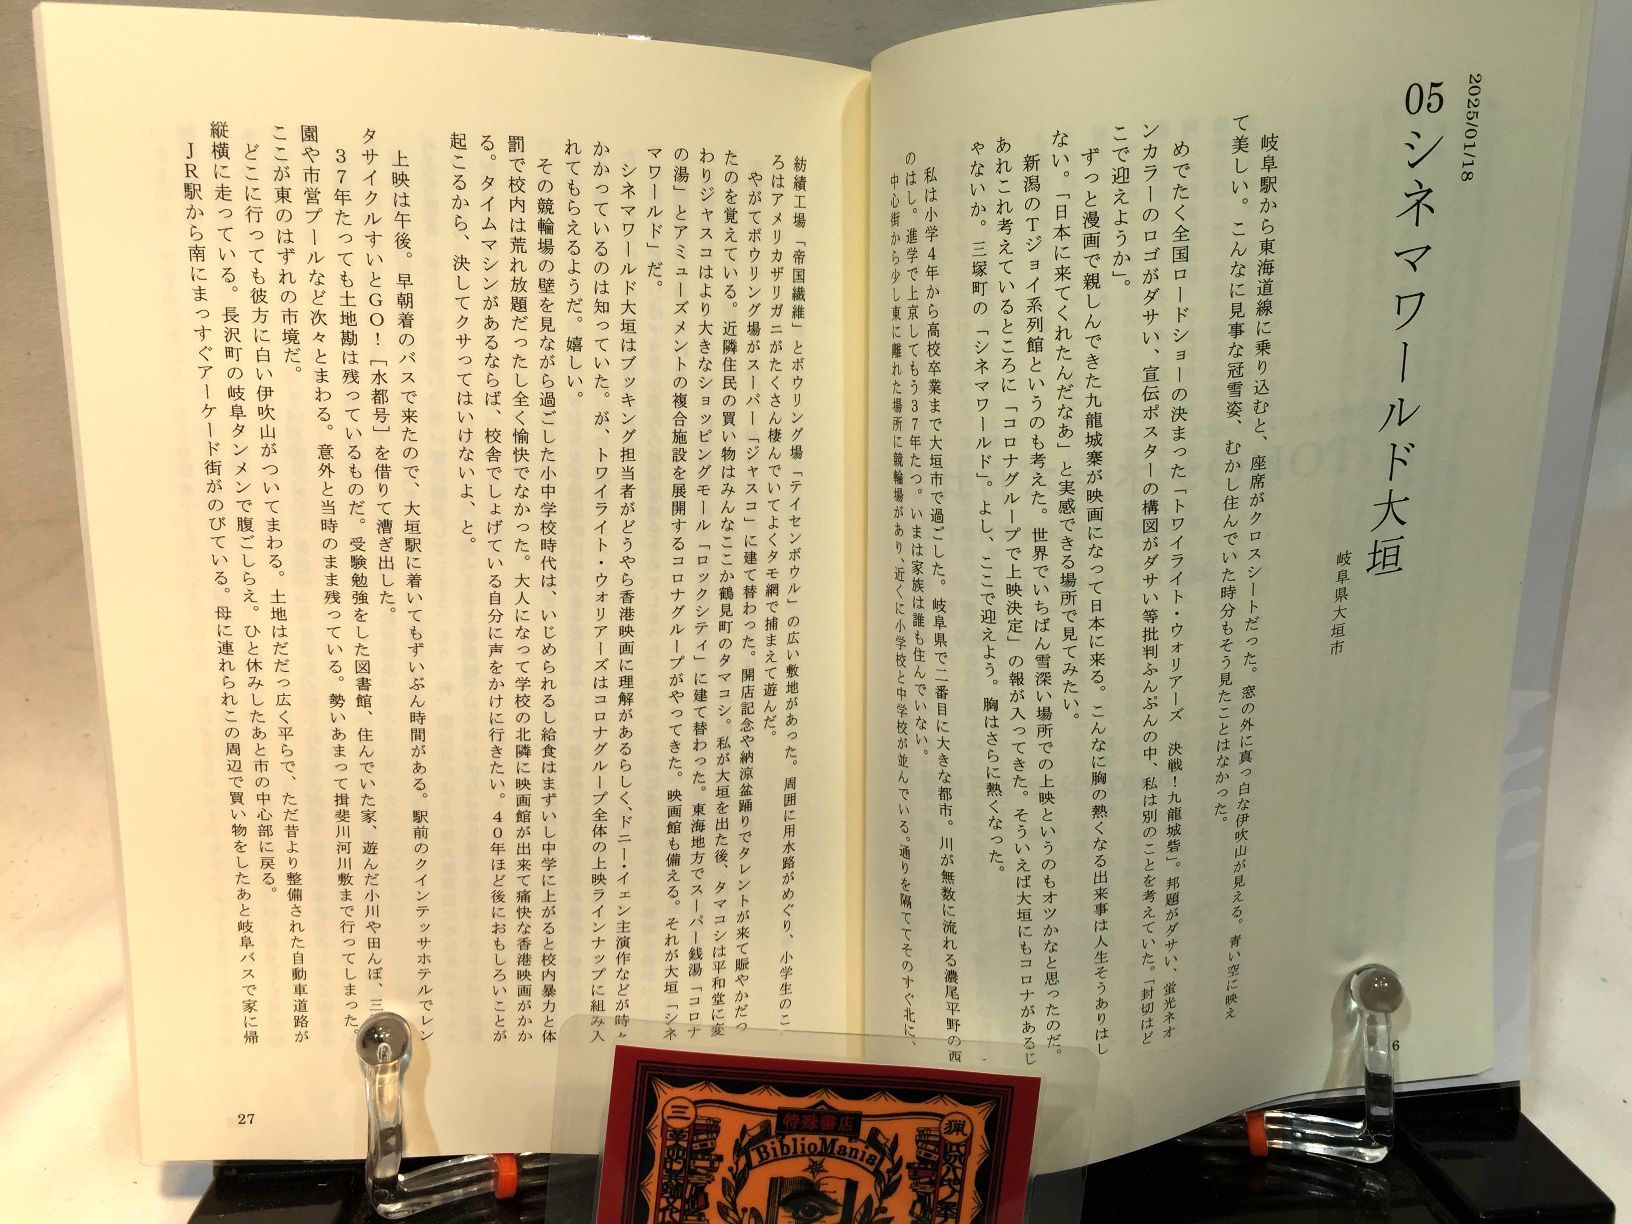 2025/01/18
05 シネマワールド大垣
岐阜県大垣市
岐阜駅から東海道線に乗り込むと、座席がクロスシートだった。窓の外に真っ白な伊吹山が見える。青い空に映え
て美しい。こんなに見事な冠雪姿、むかし住んでいた時分もそう見たことはなかった。
めでたく全国ロードショーの決まった「トワイライト・ウォリアーズ 決戦！九龍城砦」。邦題がダサい、蛍光ネオ
ンカラーのロゴがダサい、宣伝ポスターの構図がダサい等批判ふんぷんの中、私は別のことを考えていた。「封切はど
こで迎えようか」。
ずっと漫画で親しんできた九龍城寨が映画になって日本に来る。こんなに胸の熱くなる出来事は人生そうありはし
ない。「日本に来てくれたんだなあ」と実感できる場所で見てみたい。
新潟のTジョイ系列館というのも考えた。世界でいちばん雪深い場所での上映というのもオツかなと思ったのだ。
あれこれ考えているところに「コロナグループで上映決定」の報が入ってきた。そういえば大垣にもコロナがあるじ
ゃないか。三塚町の「シネマワールド」。よし、ここで迎えよう。胸はさらに熱くなった。
私は小学4年から高校卒業まで大垣市で過ごした。岐阜県で二番目に大きな都市。川が無数に流れる濃尾平野の西
のはし。進学で上京してもう37年たつ。いまは家族は誰も住んでいない。
中心街から少し東に離れた場所に競輪場があり、近くに小学校と中学校が並んでいる。通りを隔ててそのすぐ北に、
6
紡績工場「帝国繊維」とボウリング場「テイセンボウル」の広い敷地があった。周囲に用水路がめぐり、小学生のこ
ろはアメリカザリガニがたくさん棲んでいてよくタモ網で捕まえて遊んだ。
やがてボウリング場がスーパー「ジャスコ」に建て替わった。開店記念や納涼盆踊りでタレントが来て賑やかだっ
たのを覚えている。近隣住民の買い物はみんなここか鶴見町のタマコシ。私が大垣を出た後、タマコシは平和堂に変
わりジャスコはより大きなショッピングモール「ロックシティ」に建て替わった。東海地方でスーパー銭湯「コロナ
の湯」とアミューズメントの複合施設を展開するコロナグループがやってきた。映画館も備える。それが大垣「シネ
マワールド」だ。
シネマワールド大垣はブッキング担当者がどうやら香港映画に理解があるらしく、ドニー・イェン主演作などが時々
かかっているのは知っていた。が、トワイライト・ウォリアーズはコロナグループ全体の上映ラインナップに組み入
れてもらえるようだ。嬉しい。
その競輪場の壁を見ながら過ごした小中学校時代は、いじめられるし給食はまずいし中学に上がると校内暴力と体
罰で校内は荒れ放題だったし全く愉快でなかった。大人になって学校の北隣に映画館が出来て痛快な香港映画がかか
る。タイムマシンがあるならば、校舎でしょげている自分に声をかけに行きたい。40年ほど後におもしろいことが
起こるから、決してクサってはいけないよ、と。
上映は午後。早朝着のバスで来たので、大垣駅に着いてもずいぶん時間がある。駅前のクインテッサホテルでレン
タサイクルすいとGO！［水都号］を借りて漕ぎ出した。
37年たっても土地勘は残っているものだ。受験勉強をした図書館、住んでいた家、遊んだ小川や田んぼ、三
園や市営プールなど次々とまわる。意外と当時のまま残っている。勢いあまって揖斐川河川敷まで行ってしまった。
ここが東のはずれの市境だ。
どこに行っても彼方に白い伊吹山がついてまわる。土地はだだっ広く平らで、ただ昔より整備された自動車道路が
縦横に走っている。長沢町の岐阜タンメンで腹ごしらえ。ひと休みしたあと市の中心部に戻る。
JR駅から南にまっすぐアーケード街がのびている。母に連れられこの周辺で買い物をしたあと岐阜バスで家に帰
27
特殊書店
BiblioMania
三
猟